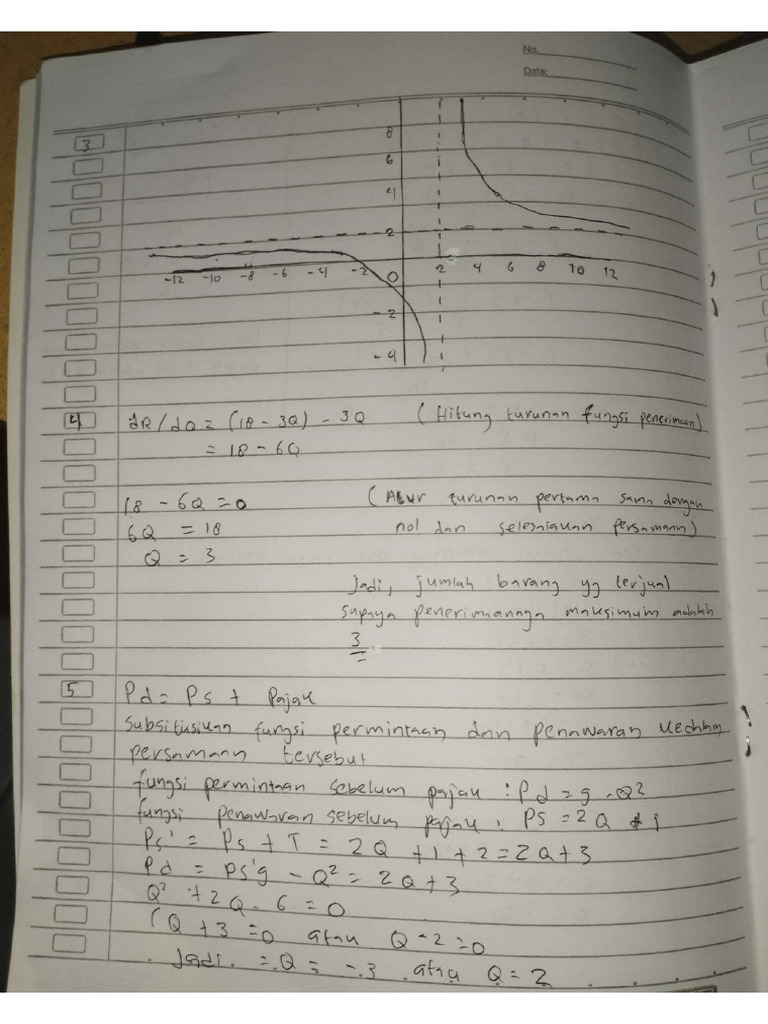 No.
Date:
3
8
6
4
2
-12 -10 -8 -6 -4 -2 0 2 4 6 8 10 12
-2
-4
4 dR/dQ = (18 - 3Q) - 3Q (Hitung turunan fungsi penerimaan)
= 18 - 6Q
18 - 6Q = 0 (Atur turunan pertama sama dengan
6Q = 18 nol dan selesaiakan persamaan)
Q = 3
Jadi, jumlah barang yg terjual
supaya penerimaannya maksimum adalah
3
5 Pd = Ps + Pajak
subsitusikan fungsi permintaan dan penawaran kedalam
persamaan tersebut
fungsi permintaan sebelum pajak : Pd = 9 - Q²
fungsi penawaran sebelum pajak : Ps = 2Q + 1
Ps' = Ps + T = 2Q + 1 + 2 = 2Q + 3
Pd = Ps' 9 - Q² = 2Q + 3
Q² + 2Q - 6 = 0
(Q + 3 = 0 atau Q - 2 = 0
Jadi. = Q = -3 atau Q = 2